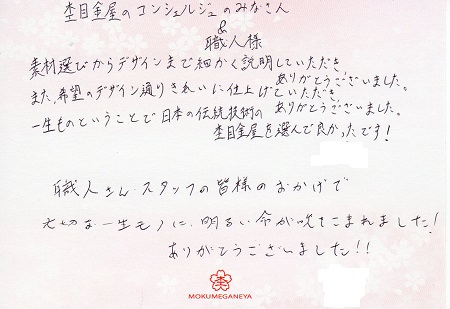 杢目金屋のコンシェルジュのみなさん
&
職人様
素材選びからデザインまで細かく説明していただき
ありがとうございました。
また、希望のデザイン通りきれいに仕上げていただき
ありがとうございました。
一生ものということで日本の伝統技術の
杢目金屋を選んで良かったです!
職人さん、スタッフの皆様のおかげで
大切な一生モノに、明るい命が吹きこまれました!
ありがとうございました!!
MOKUMEGANEYA